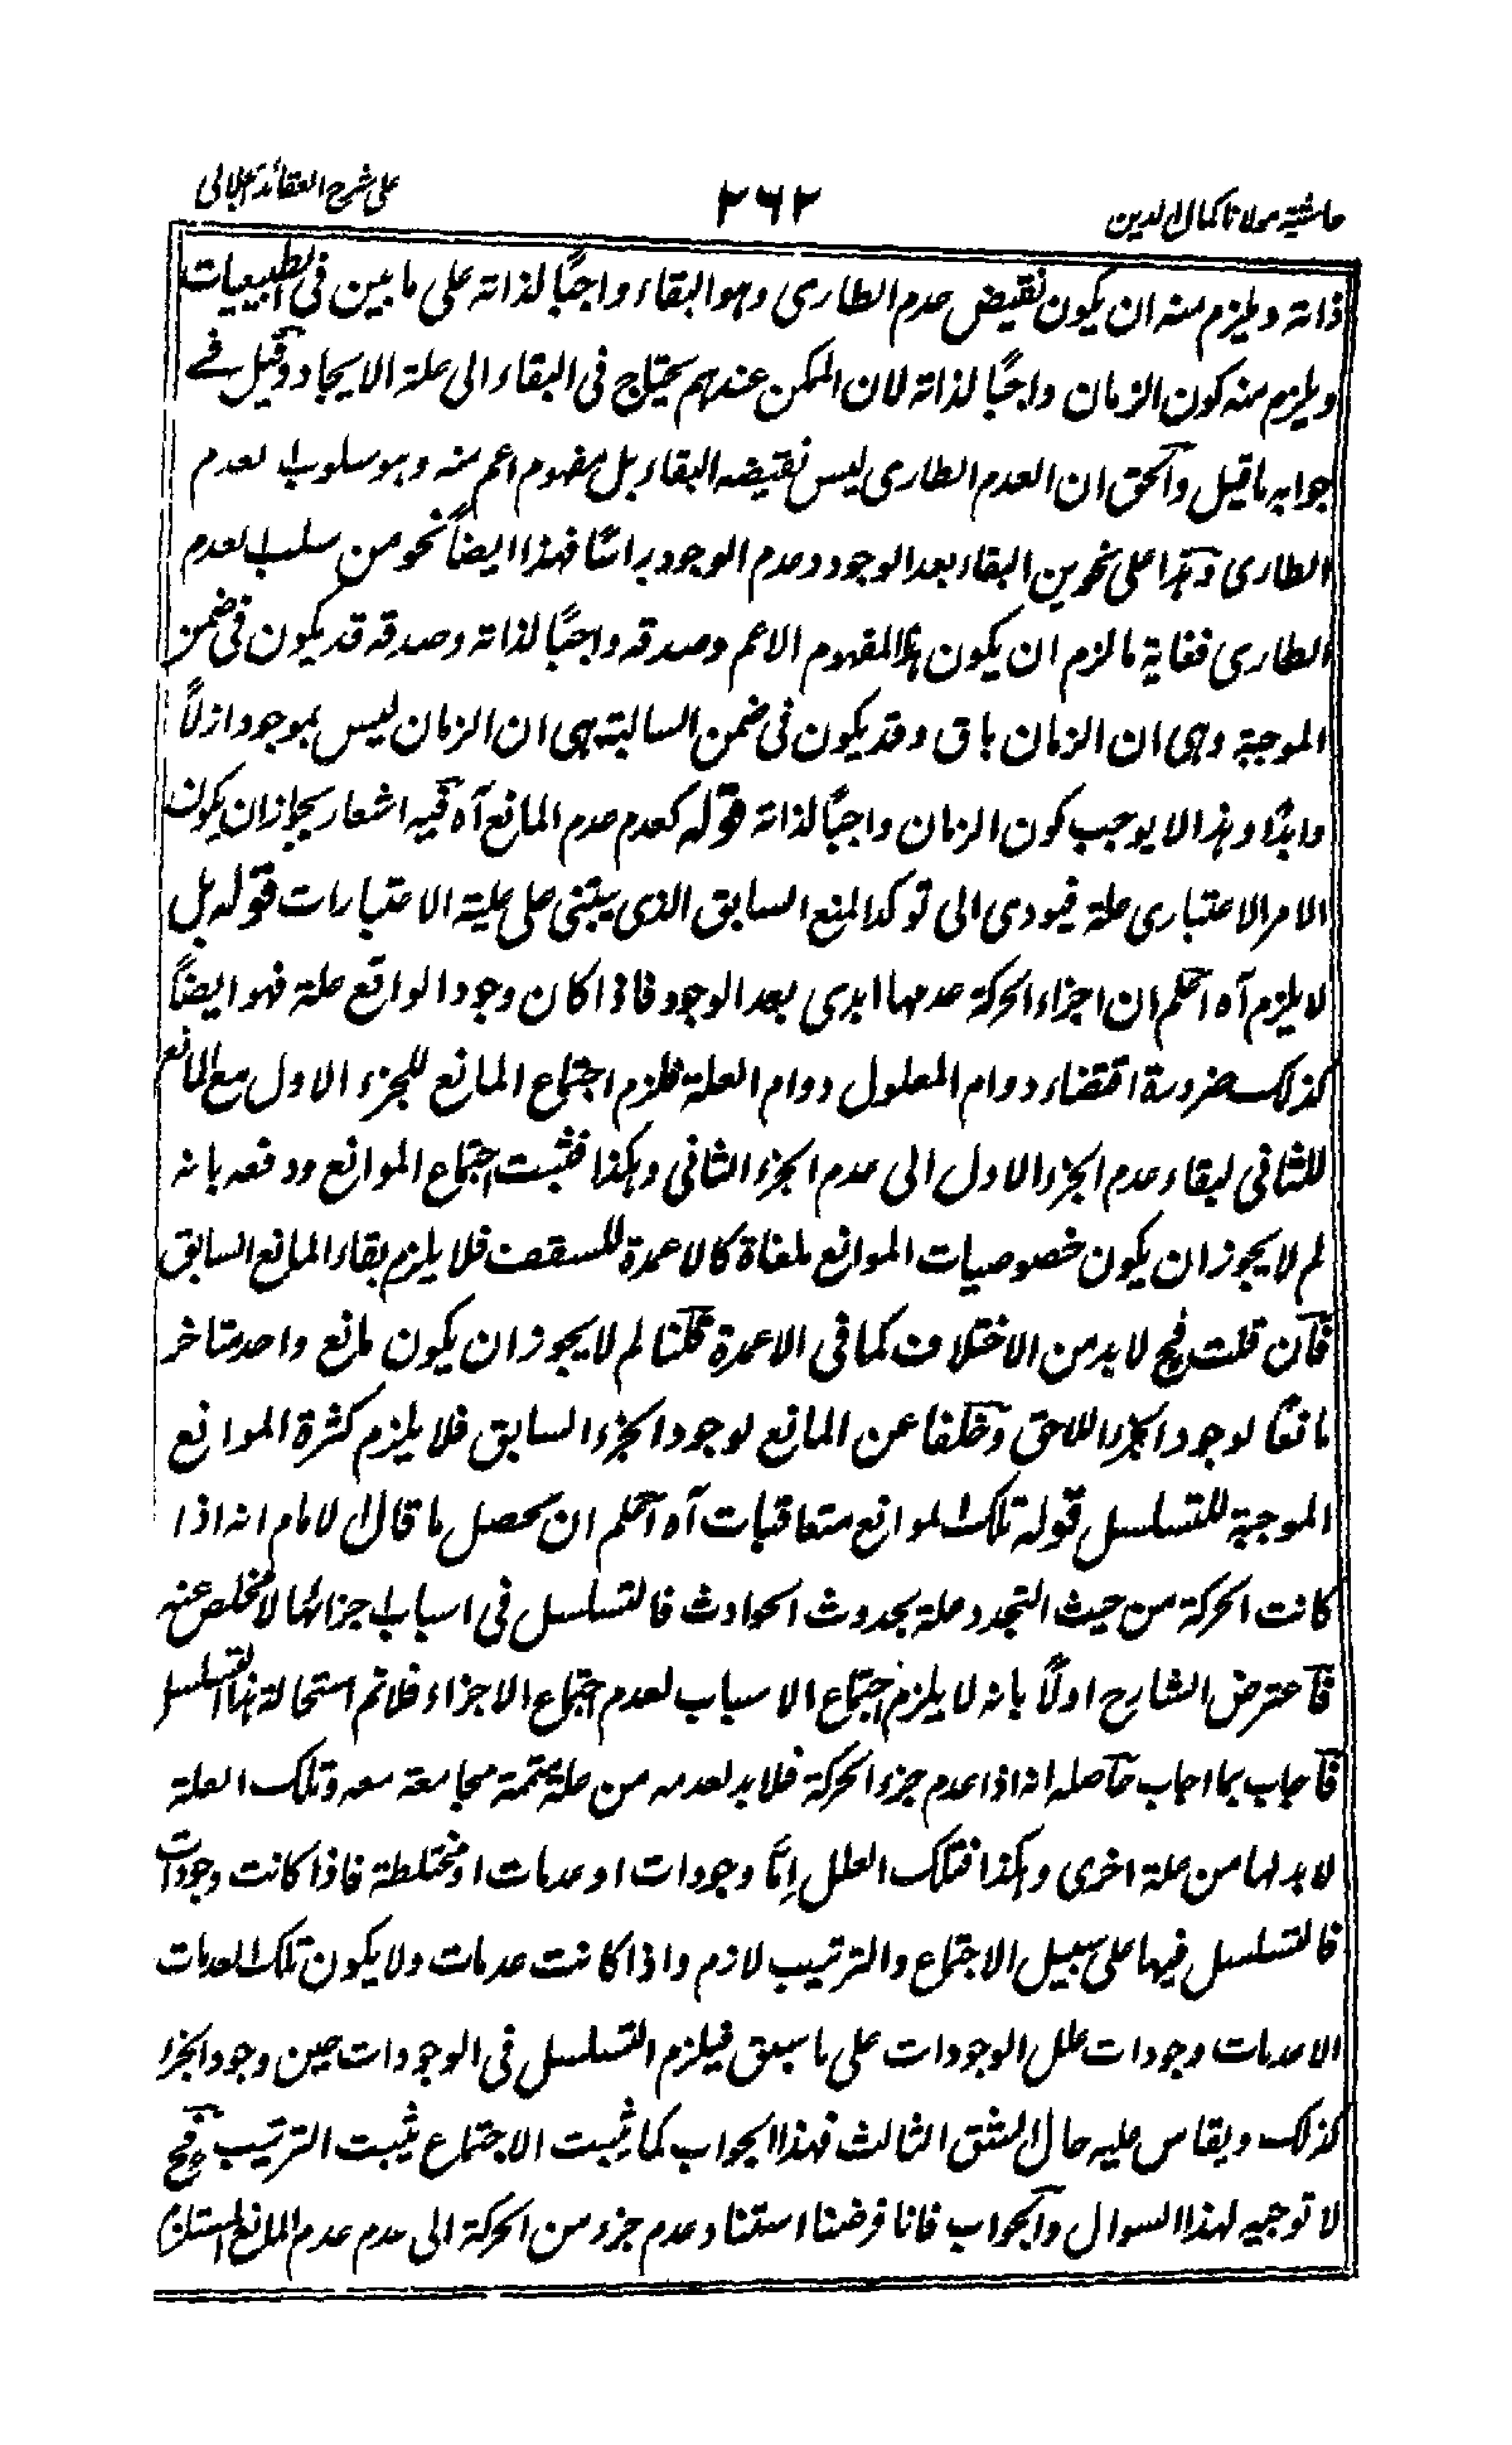 حاشية مولانا كمال الدين
٢٦٢
على شرح العقائد الجلالى
ذاته ويلزم منه ان يكون نقيض عدم الطارى وهو البقاء واجبًا لذاته على ما بين فى الطبيعيات
ويلزم منه كون الزمان واجبًا لذاته لان الممكن عندهم يحتاج فى البقاء الى علة الايجاد وقيل فے
جوابه ما قيل والحق ان العدم الطارى ليس نقيضه البقاء بل مفهوم اعم منه وهو سلوب العدم
الطارى وهذا على نحوين البقاء بعد الوجود وعدم الوجود راسًا فهذا ايضاً نحو من سلب العدم
الطارى فغاية ما لزم ان يكون هذا المفهوم الاعم وصدقه واجبًا لذاته وصدقه قد يكون فى ضمن
الموجبة وهى ان الزمان باق وقد يكون فى ضمن السالبة هى ان الزمان ليس بموجود ازلاً
وابدًا وهذا لا يوجب كون الزمان واجبًا لذاته قوله كعدم عدم المانع آه فيه اشعار بجواز ان يكون
الامر الاعتبارى علة فيودى الى توكد المنع السابق الذى يبتنى على علية الاعتبارات قوله بل
لا يلزم آه اعلم ان اجزاء الحركة عدمها ابدى بعد الوجود فاذا كان وجود الواقع علة فهو ايضاً
كذلك ضرورة اقتضاء دوام المعلول دوام العلة فلزم اجتماع المانع للجزء الاول مع المانع
للثانى لبقاء عدم الجزء الاول الى عدم الجزء الثانى وهكذا فثبت اجتماع الموانع ودفعه بانه
لم لا يجوز ان يكون خصوصيات الموانع ملغاة كالاعمدة للسقف فلا يلزم بقاء المانع السابق
فان قلت فح لا بد من الاختلاف كما فى الاعمدة قلنا لم لا يجوز ان يكون مانع واحد متاخر
مانعًا لوجود الجزء اللاحق وخلفا عن المانع لوجود الجزء السابق فلا يلزم كثرة الموانع
الموجبة للتسلسل قوله تلك الموانع متعاقبات آه اعلم ان محصل ما قال الامام انه اذا
كانت الحركة من حيث التجدد علة بحدوث الحوادث فالتسلسل فى اسباب اجزائها لا مخلص عنه
فاعترض الشارح اولاً بانه لا يلزم اجتماع الاسباب لعدم اجتماع الاجزاء فلا تم استحالة هذا التسلسل
فاجاب بما اجاب حاصله انه اذا عدم جزء الحركة فلا بد لعدمه من علة متممة مجامعة معه وتلك العلة
لا بد لها من علة اخرى وهكذا فتلك العلل إمّا وجودات او عدمات او مختلطة فاذا كانت وجودات
فالتسلسل فيها على سبيل الاجتماع والترتيب لازم واذا كانت عدمات ولا يكون تلك العدمات
الا عدمات وجودات علل الوجودات على ما سبق فيلزم التسلسل فى الوجودات حين وجود الجزء
كذلك ويقاس عليه حال الشق الثالث فهذا الجواب كما يثبت الاجتماع يثبت الترتيب وفح
لا توجيه لهذا السوال والجواب فانا فرضنا استناد عدم جزء من الحركة الى عدم عدم المانع المستلزم